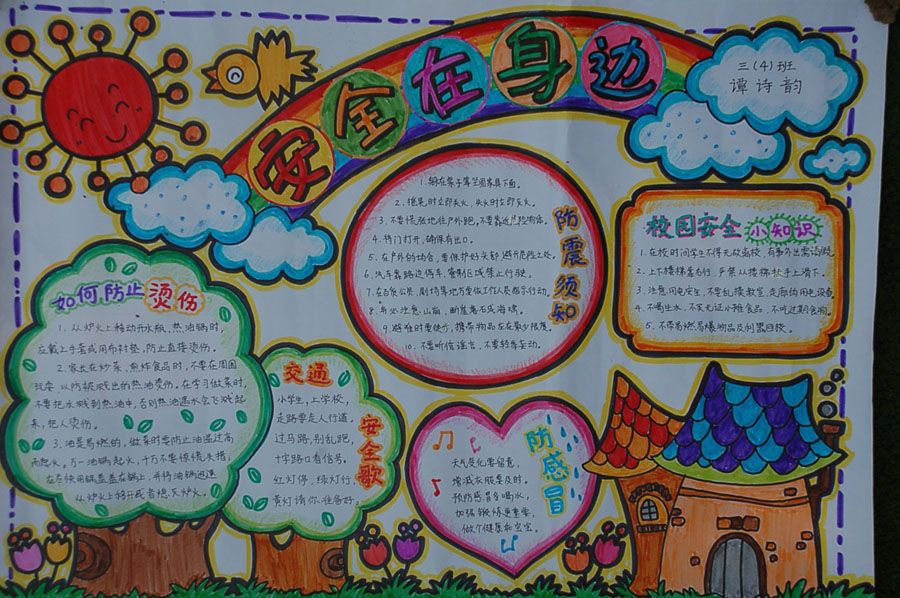 安全在身边
三(4)班
谭诗韵
如何防止烫伤
1. 从炉火上移动开水瓶、热油锅时,
应戴上手套或用布衬垫,防止直接烫伤。
2. 家长在炒菜、煎炸食品时,不要在周围
玩耍,以防被溅出的热油烫伤。在学习做菜时,
不要把水溅到热油中,否则热油遇水会飞溅起
来,把人烫伤。
3. 油是易燃的,做菜时要防止油温过高
而起火。万一油锅起火,千万不要惊慌失措,
在尽快用锅盖盖在锅上,并将油锅迅速
从炉火上移开或者熄灭炉火。
交通安全歌
小学生,上学校,
走路要走人行道,
过马路,别乱跑,
十字路口看信号。
红灯停,绿灯行,
黄灯请你准备好。
防震须知
1. 躲在桌子等坚固家具下面。
2. 摇晃时立即关火,失火时立即灭火。
3. 不要慌张地往户外跑,不要靠近
4. 将门打开,确保有出口。
5. 在户外的场合,要保护好头部,避开危险之处。
6. 汽车靠路边停车,管制区域禁止行驶。
7. 在百货公司、剧场等地方要依工作人员指示行动。
8. 务必注意山崩、断崖落石或海啸。
9. 避难时要徒步,携带物品应在最少限度。
10. 不要听信谣言,不要轻举妄动。
防感冒
天气变化要留意,
增减衣服要及时,
预防感冒多喝水,
加强锻炼更重要,
做个健康乖宝宝。
校园安全小知识
1. 在校时间学生不得无故离校,有事外出需请假。
2. 上下楼梯靠右行,严禁从楼梯扶手上滑下。
3. 注意用电安全,不要乱摸教室、走廊的用电设备。
4. 不喝生水、不买无证小摊食品,不吃过期食物。
5. 不带易燃易爆物品及利器回校。